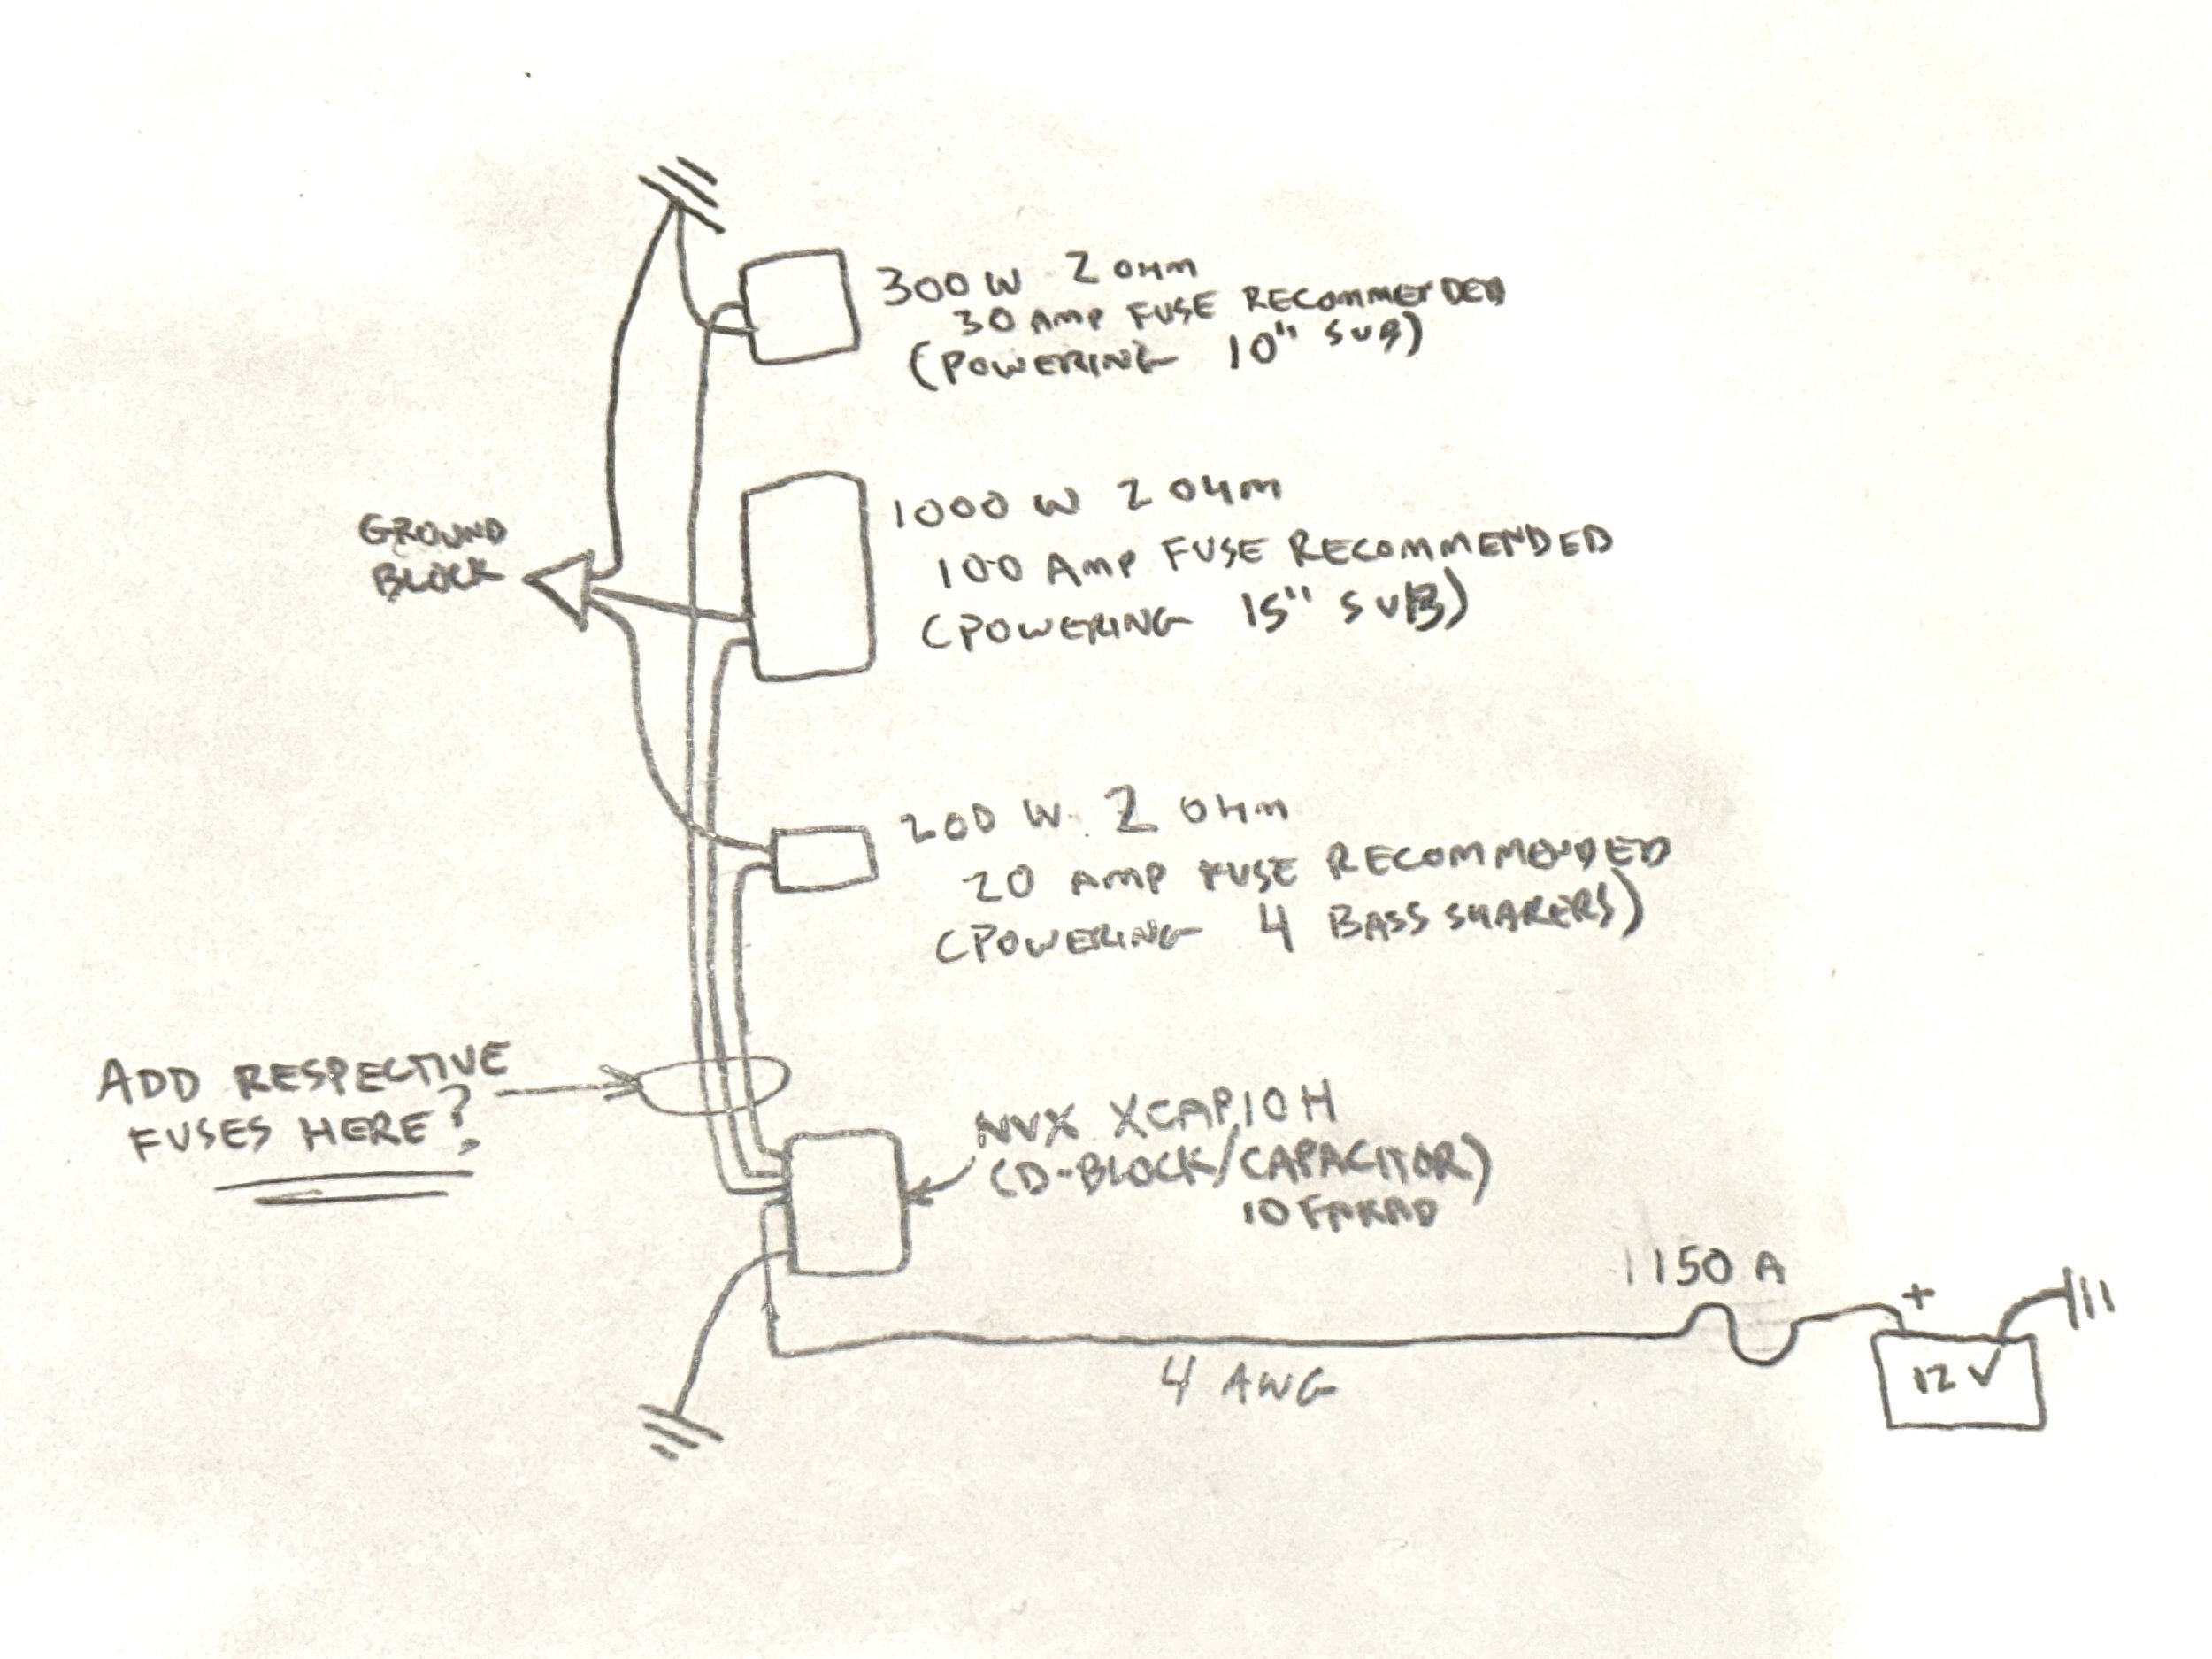 300 W 2 OHM
30 AMP FUSE RECOMMENDED
(POWERING 10" SUB)
GROUND
BLOCK
1000 W 2 OHM
100 AMP FUSE RECOMMENDED
(POWERING 15" SUB)
200 W 2 OHM
20 AMP FUSE RECOMMENDED
(POWERING 4 BASS SHAKERS)
ADD RESPECTIVE
FUSES HERE?
NVX XCAP10H
(D-BLOCK/CAPACITOR)
10 FARAD
150 A
+
12 V
4 AWG